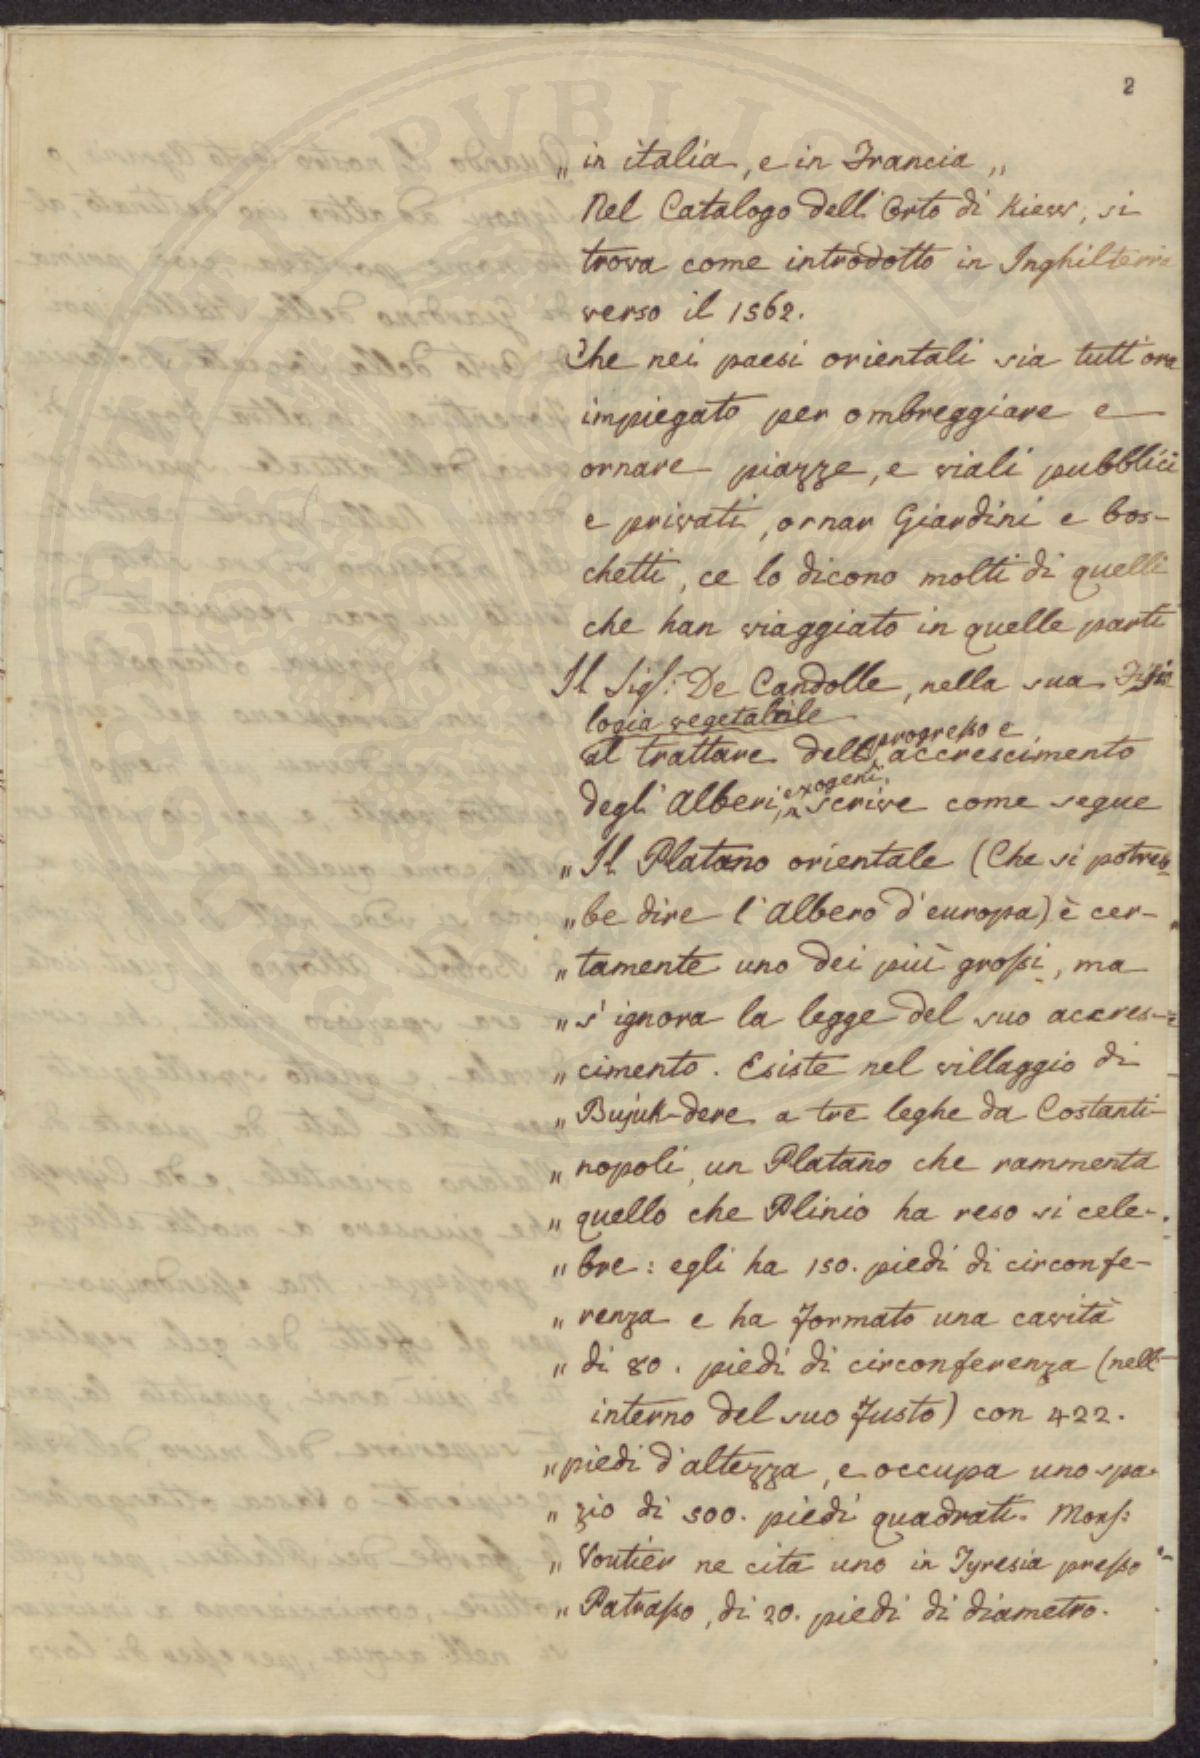 2
„ in italia, e in Francia „
Nel Catalogo dell'Orto di Kiew, si
trova come introdotto in Inghilterra
verso il 1562.
Che nei paesi orientali sia tutt'ora
impiegato per ombreggiare e
ornare piazze, e viali pubblici
e privati, ornar Giardini e bos-
chetti, ce lo dicono molti di quelli
che han viaggiato in quelle parti
Il Sigʳ: De Candolle, nella sua Fisio
logia vegetabile
progresso e
al trattare dell' accrescimento
exogeni,
degl'Alberi, scrive come segue
„ Il Platano orientale (Che si potreb
„ be dire l'albero d'europa) è cer-
„ tamente uno dei più grossi, ma
„ s'ignora la legge del suo accres-
„ cimento. Esiste nel villaggio di
„ Bujuk-dere a tre leghe da Costanti-
„ nopoli, un Platano che rammenta
„ quello che Plinio ha reso si cele-
„ bre: egli ha 150. piedi di circonfe-
„ renza e ha formato una cavità
„ di 80. piedi di circonferenza (nell'
interno del suo fusto) con 422.
„ piedi d'altezza, e occupa uno spa-
„ zio di 500. piedi quadrati. Monsʳ:
„ Voutier ne cita uno in presso
„ Patrasso, di 20. piedi di diametro.